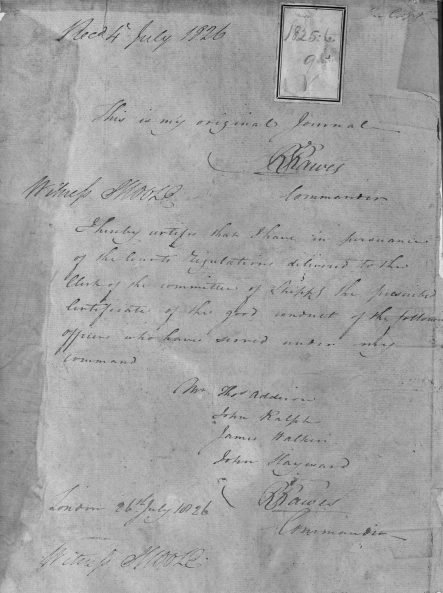 Recd 4 July 1826
1825.6
This is my original Journal
RRawes
Commander
Witness
I hereby certify that I have in pursuance
of the Courts regulations delivered to the
Clerk of the committee of Shipps the prescribed
Certificate of the good conduct of the follow
officers who have served under my
Command
Mr Thos Addison
John Ralph
James Walkin
John Hayward
London 26th July 1826
RRawes
Commander
Witness